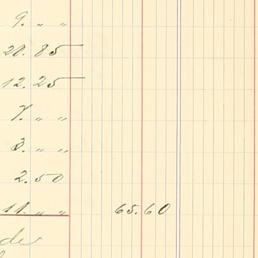 9. " "
20.85
12.25
7. " "
3. " "
2.50
11. " " 65.60
de